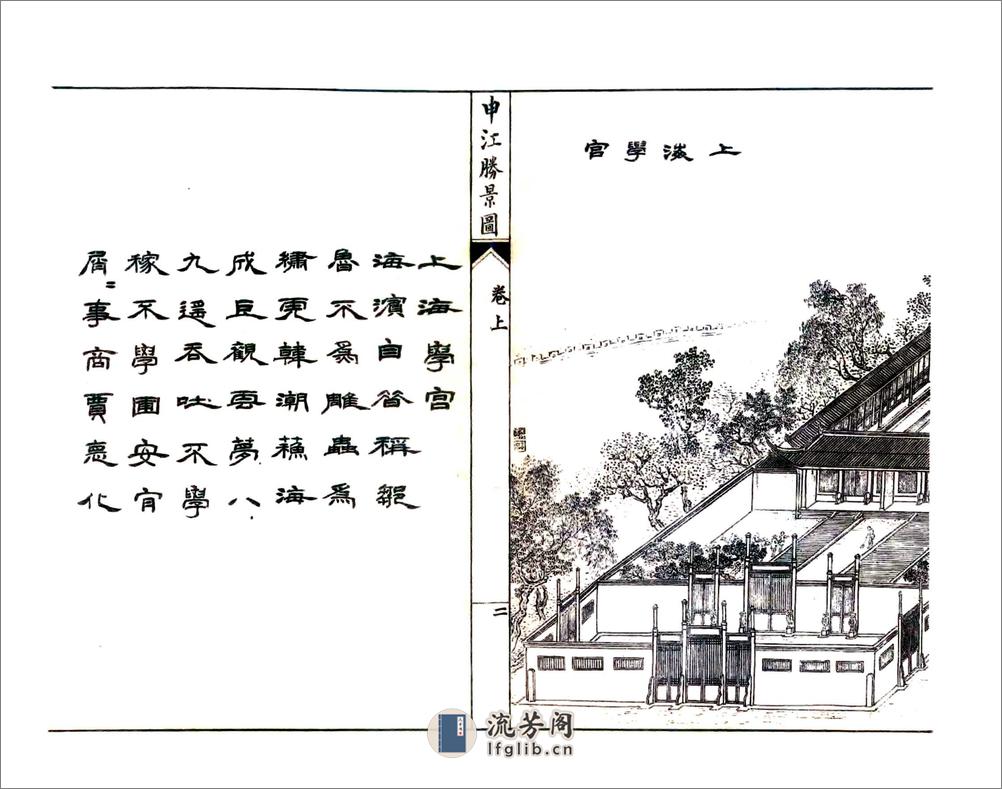 上海學宮
申江勝景圖
卷上
二
上海學宮
海濱自昔稱鄒
魯不為雕蟲為
繡虎韓潮蘇海
成巨觀雲夢八
九還吞吐不學
稼不學圃安肎
屑〻事商賈悳化
流芳阁
lfglib.cn